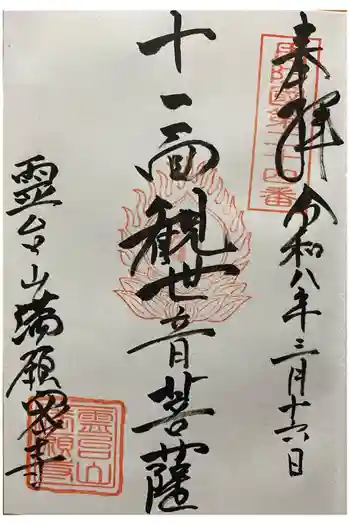 奉拜 令和八年三月十六日
十一面観世音菩薩
霊台山 満願寺
第二十四番
霊台山
満願寺